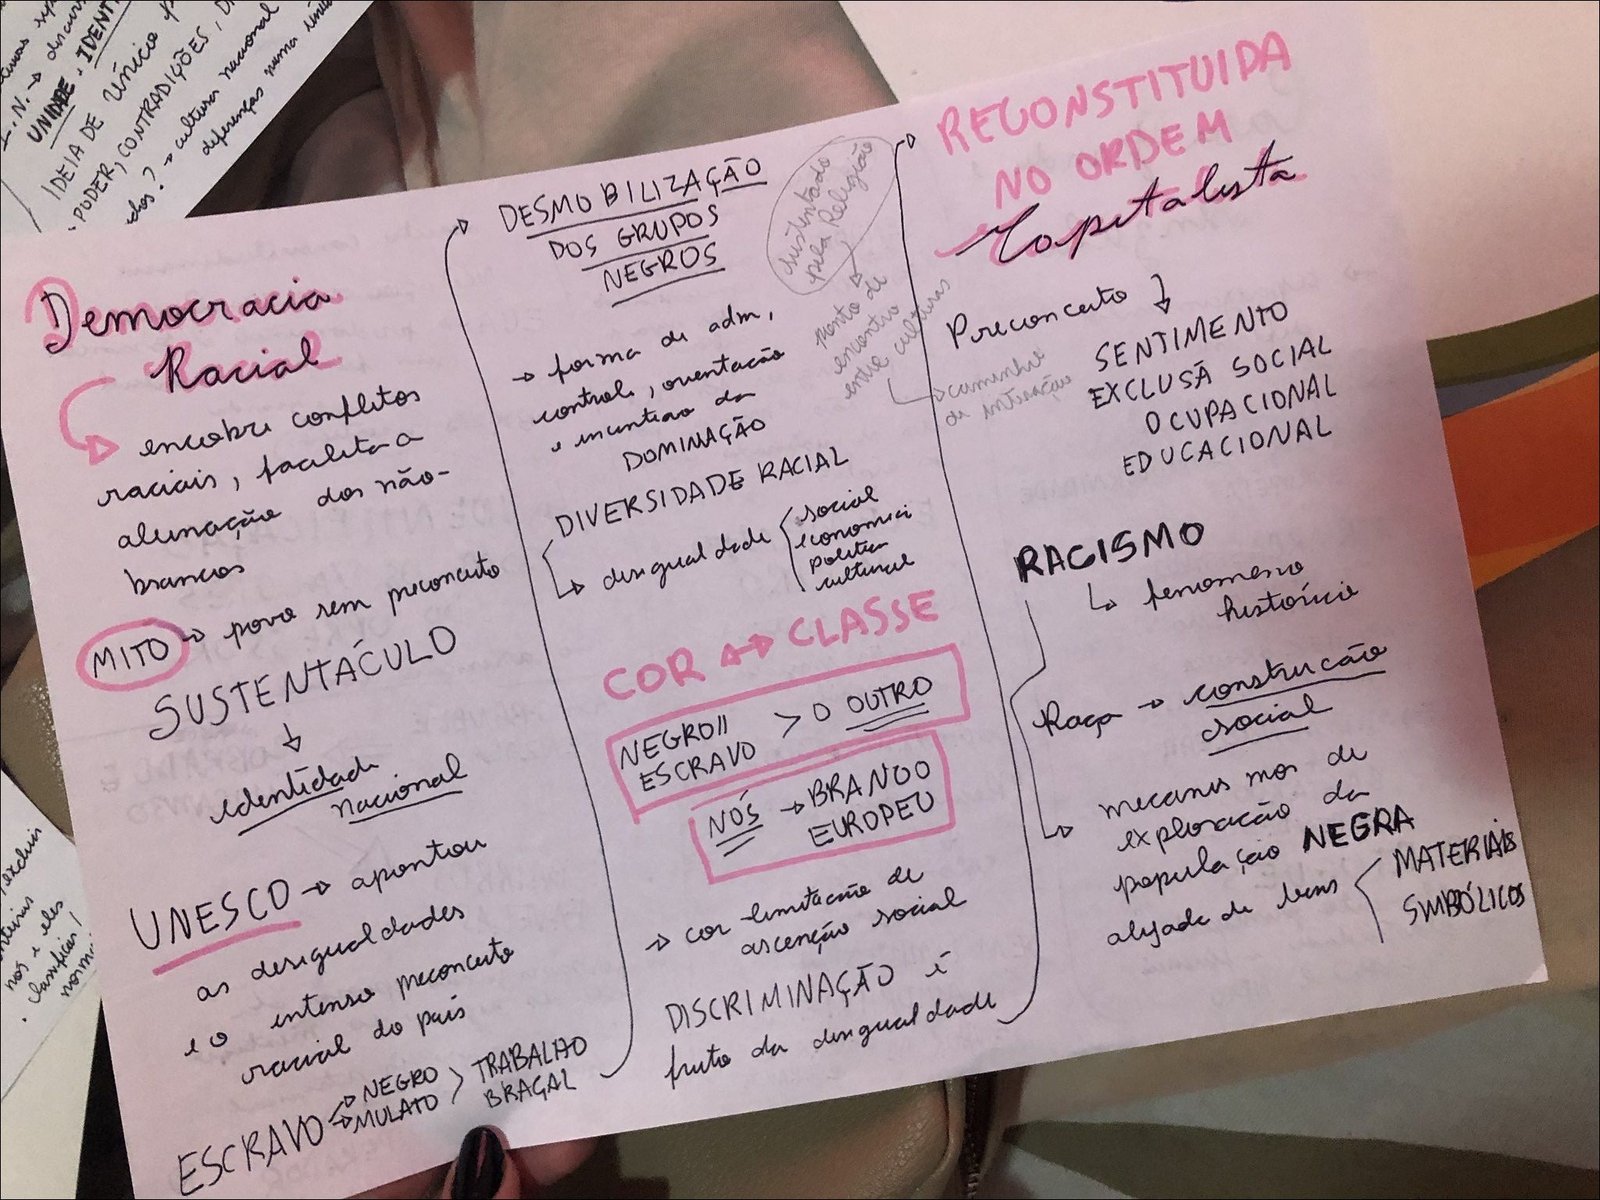 UNIDADE
IDEIA DE único
PODER, CONTRADIÇÕES,
cultura nacional
diferenças numa
Democracia
Racial
encobre conflitos
raciais, facilita a
alienação dos não-
brancos
MITO → povo sem preconceito
SUSTENTÁCULO
↓
identidade
nacional
UNESCO → apontou
as desigualdades
e o intenso preconceito
racial do país
ESCRAVO → NEGRO
→ MULATO > TRABALHO
BRAÇAL
DESMOBILIZAÇÃO
DOS GRUPOS
NEGROS
→ forma de adm,
controle, orientação
e incentivo da
DOMINAÇÃO
DIVERSIDADE RACIAL
↳ desigualdade { social
economica
politica
cultural
COR ↔ CLASSE
NEGRO//
ESCRAVO > O OUTRO
NÓS → BRANCO
EUROPEU
→ cor limitação de
ascenção social
DISCRIMINAÇÃO é
fruto da desigualdade
sustentado
pela Religião
ponto de
encontro
entre culturas
→ caminho
de interação
RECONSTITUIDA
NO ORDEM
Capitalista
Preconceito ↓
SENTIMENTO
EXCLUSÃ SOCIAL
OCUPACIONAL
EDUCACIONAL
RACISMO
↳ fenomeno
histórico
Raça → construcão
social
mecanismos de
exploração da
população NEGRA
alijada de bens < MATERIAIS
SIMBÓLICOS
nós e eles
classificar/